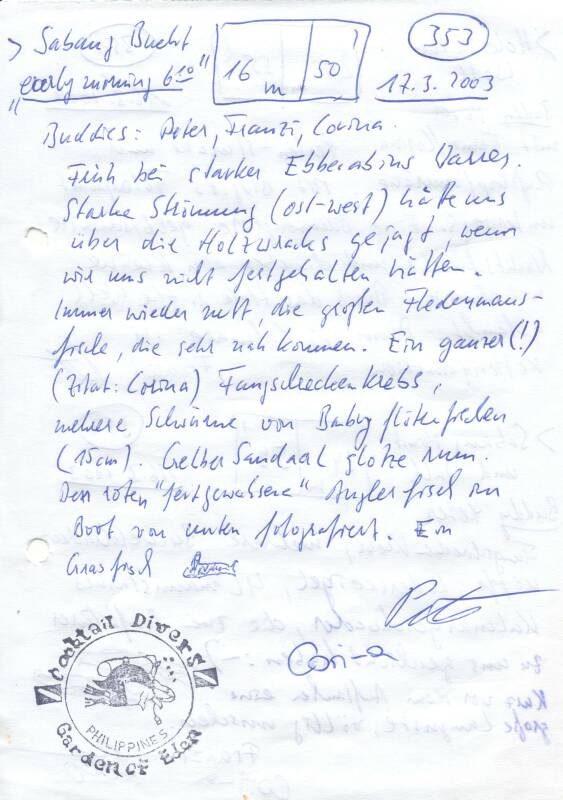 > Sabang Bucht
"early morning 6¹⁰"
16 m
50'
353
17.3.2003
Buddies: Peter, Franzi, Corina.
Früh bei starker Ebbe ins Wasser.
Starke Strömung (ost-west) hätte uns
über die Holzwracks gejagt, wenn
wir uns nicht festgehalten hätten.
Immer wieder nett, die großen Fledermaus-
fische, die sehr nah kommen. Ein ganzer (!)
(Zitat: Corina) Fangschreckenkrebs,
mehrere Schwärme von Baby flötenfischen
(15cm). Gelber Sandaal glotze rum.
Den roten "festgewachsenen" Anglerfisch im
Boot von unten fotografiert. Ein
Grasfisch
Corina
Cocktail Divers
PHILIPPINES
Garden of Eden